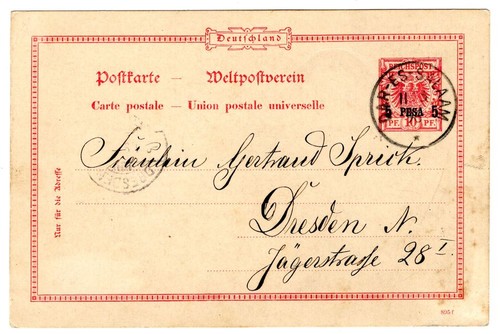 Deutschland
Postkarte — Weltpostverein
Carte postale — Union postale universelle
REICHSPOST
PF. 10 PF.
5 PESA 5
DAR-ES-SALAAM
11
Fräulein Gertrand Sprick.
Dresden N.
Jägerstrasse 28 I.
Nur für die Adresse